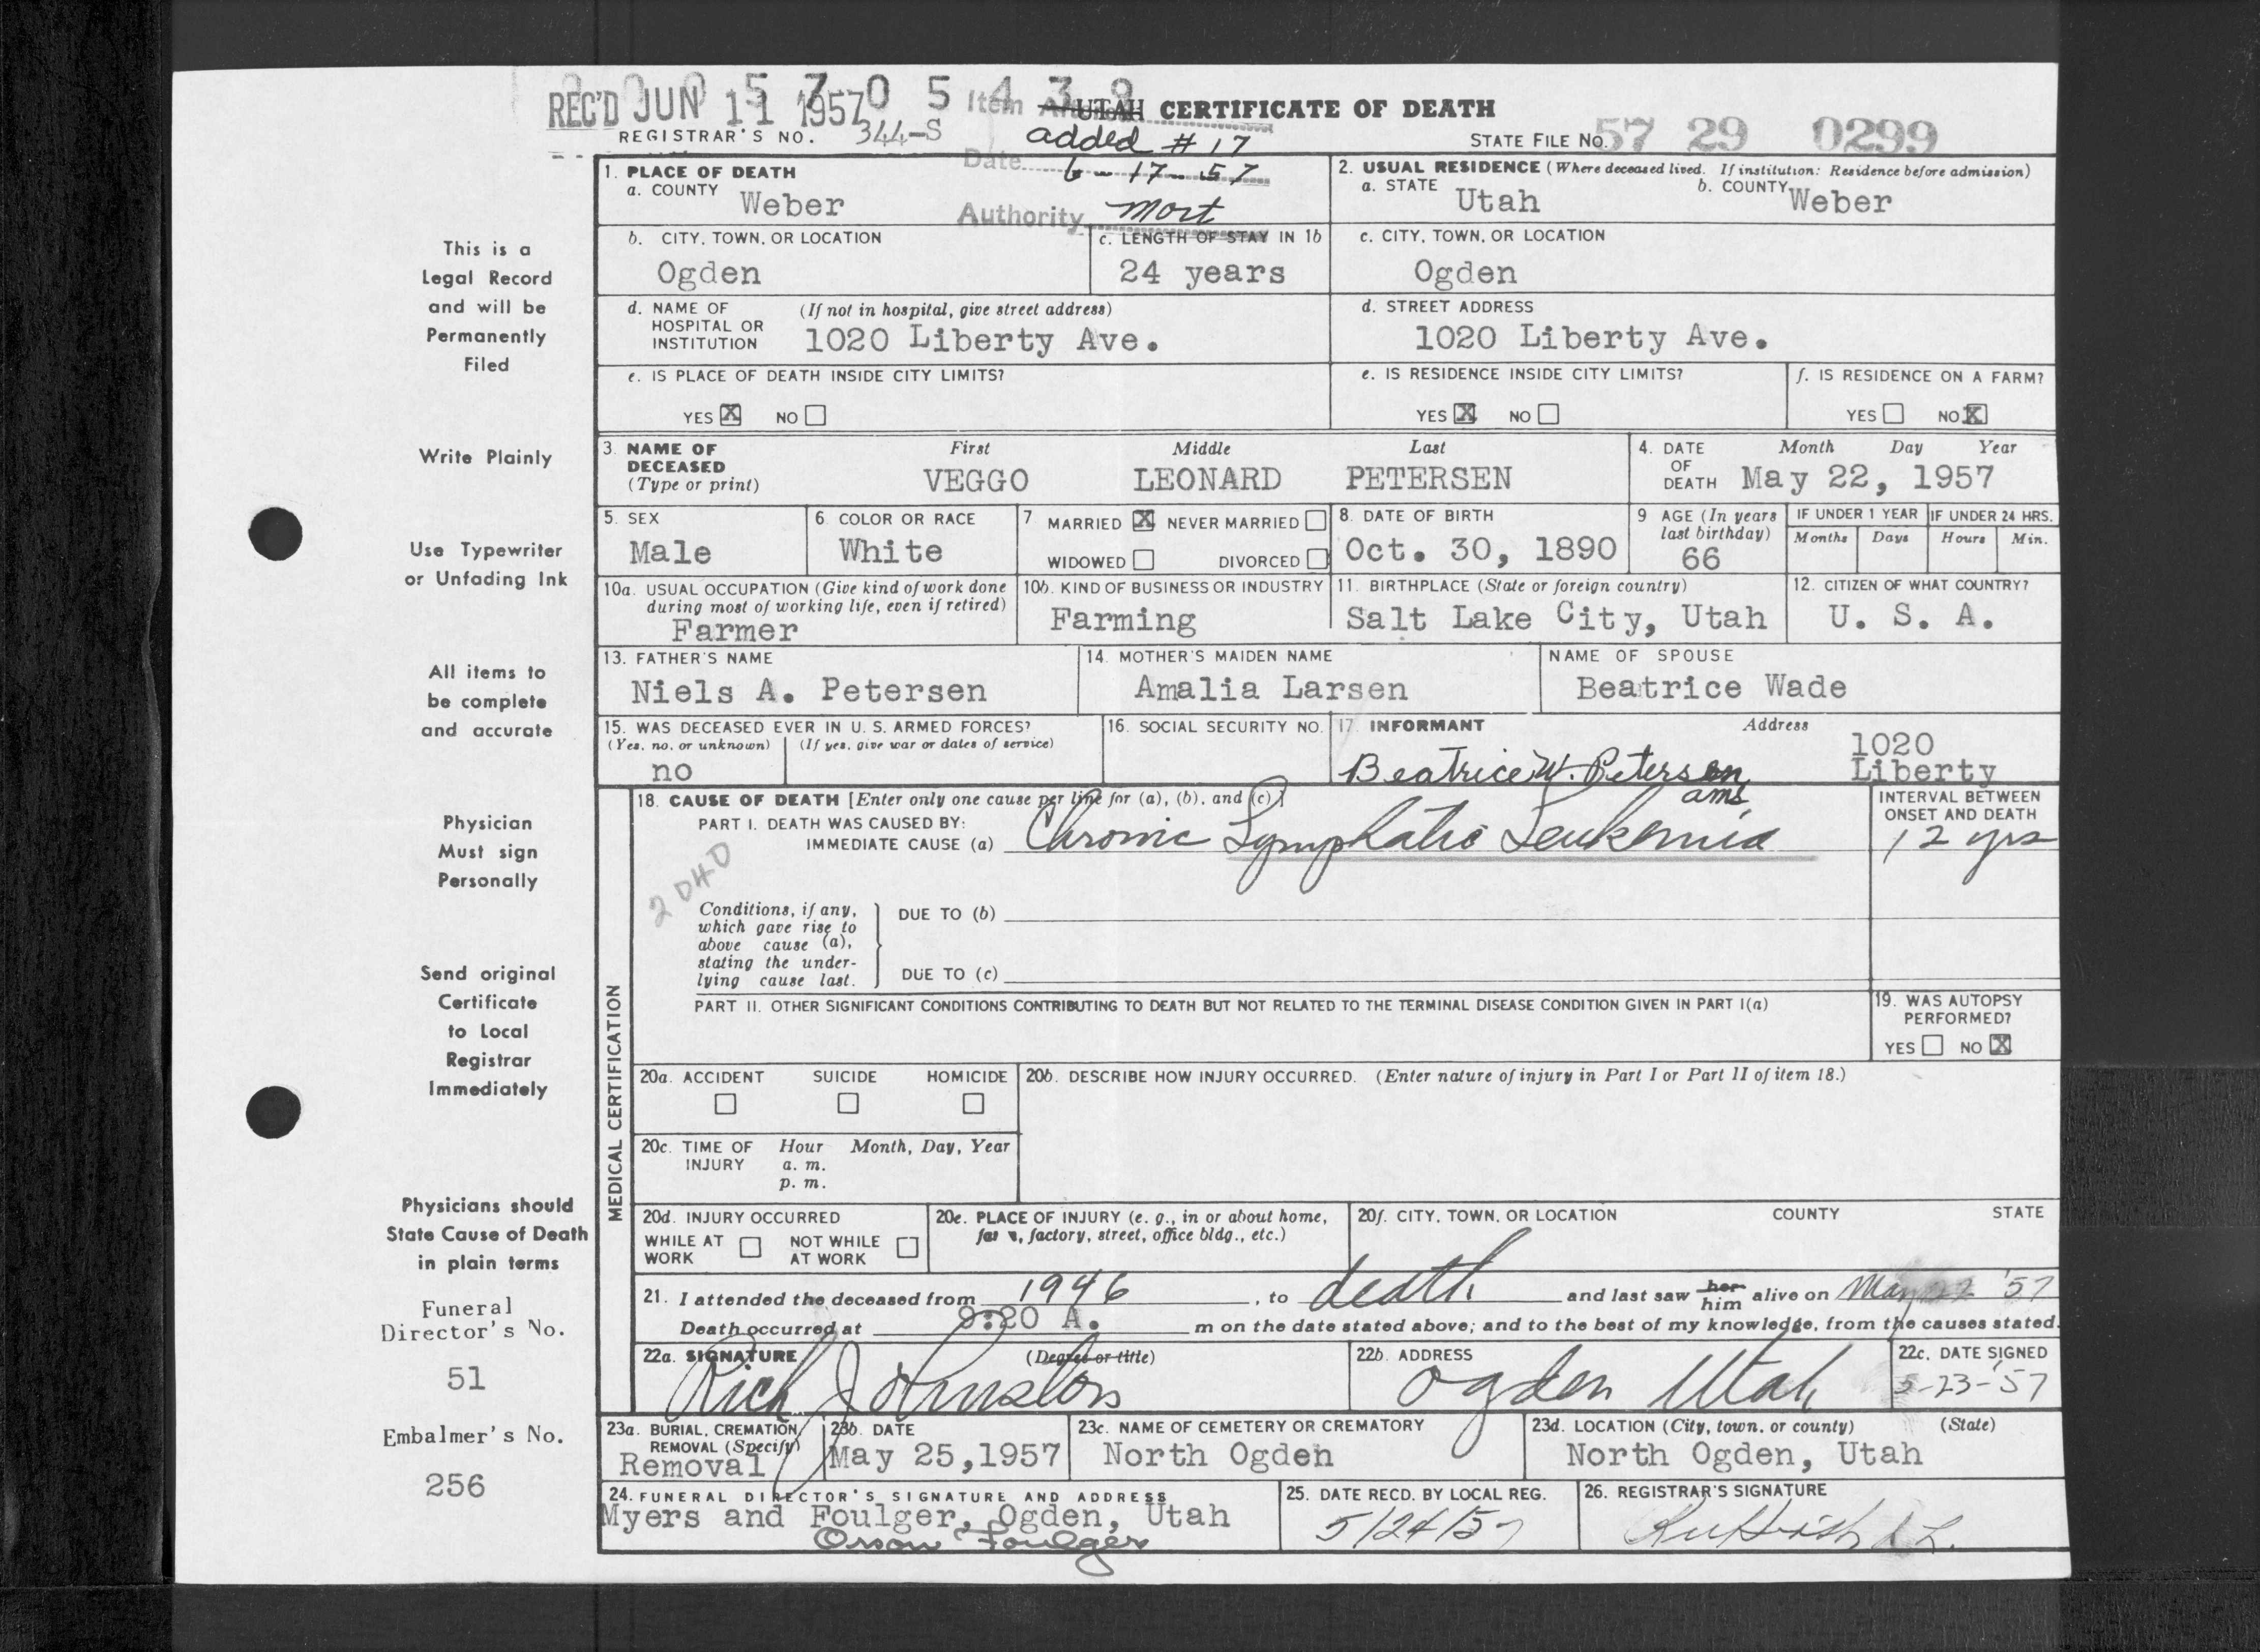 REC'D JUN 11 1957
0 5 4 3 9
Item
UTAH CERTIFICATE OF DEATH
REGISTRAR'S NO. 344-S
added #17
STATE FILE NO. 57 29 0299
Date 6-17-57
Authority Mort
1. PLACE OF DEATH
a. COUNTY Weber
2. USUAL RESIDENCE (Where deceased lived. If institution: Residence before admission)
a. STATE Utah b. COUNTY Weber
b. CITY, TOWN, OR LOCATION
Ogden
c. LENGTH OF STAY IN 1b
24 years
c. CITY, TOWN, OR LOCATION
Ogden
d. NAME OF HOSPITAL OR INSTITUTION (If not in hospital, give street address)
1020 Liberty Ave.
d. STREET ADDRESS
1020 Liberty Ave.
e. IS PLACE OF DEATH INSIDE CITY LIMITS?
YES X NO
e. IS RESIDENCE INSIDE CITY LIMITS?
YES X NO
f. IS RESIDENCE ON A FARM?
YES NO X
3. NAME OF DECEASED (Type or print)
First Middle Last
VEGGO LEONARD PETERSEN
4. DATE OF DEATH Month Day Year
May 22, 1957
5. SEX
Male
6. COLOR OR RACE
White
7 MARRIED X NEVER MARRIED
WIDOWED DIVORCED
8. DATE OF BIRTH
Oct. 30, 1890
9 AGE (In years last birthday)
66
IF UNDER 1 YEAR
Months Days
IF UNDER 24 HRS.
Hours Min.
10a. USUAL OCCUPATION (Give kind of work done during most of working life, even if retired)
Farmer
10b. KIND OF BUSINESS OR INDUSTRY
Farming
11. BIRTHPLACE (State or foreign country)
Salt Lake City, Utah
12. CITIZEN OF WHAT COUNTRY?
U. S. A.
13. FATHER'S NAME
Niels A. Petersen
14. MOTHER'S MAIDEN NAME
Amalia Larsen
NAME OF SPOUSE
Beatrice Wade
15. WAS DECEASED EVER IN U. S. ARMED FORCES?
(Yes, no, or unknown) (If yes, give war or dates of service)
no
16. SOCIAL SECURITY NO.
17 INFORMANT Address
Beatrice W. Petersen
ams
1020
Liberty
18. CAUSE OF DEATH [Enter only one cause per line for (a), (b), and (c)]
PART I. DEATH WAS CAUSED BY:
IMMEDIATE CAUSE (a) Chronic Lymphatic Leukemia
INTERVAL BETWEEN ONSET AND DEATH
12 yrs
2040
Conditions, if any, which gave rise to above cause (a), stating the underlying cause last.
DUE TO (b)
DUE TO (c)
PART II. OTHER SIGNIFICANT CONDITIONS CONTRIBUTING TO DEATH BUT NOT RELATED TO THE TERMINAL DISEASE CONDITION GIVEN IN PART I(a)
19. WAS AUTOPSY PERFORMED?
YES NO X
MEDICAL CERTIFICATION
20a. ACCIDENT SUICIDE HOMICIDE
20b. DESCRIBE HOW INJURY OCCURRED. (Enter nature of injury in Part I or Part II of item 18.)
20c. TIME OF INJURY Hour Month, Day, Year
a. m.
p. m.
20d. INJURY OCCURRED
WHILE AT WORK NOT WHILE AT WORK
20e. PLACE OF INJURY (e. g., in or about home, farm, factory, street, office bldg., etc.)
20f. CITY, TOWN, OR LOCATION COUNTY STATE
21. I attended the deceased from 1946, to death and last saw her him alive on May 22 '57
Death occurred at 8:20 A. m on the date stated above; and to the best of my knowledge, from the causes stated.
22a. SIGNATURE (Degree or title)
Rich Johnston
22b. ADDRESS
Ogden Utah
22c. DATE SIGNED
5-23-'57
23a. BURIAL, CREMATION, REMOVAL (Specify)
Removal
23b. DATE
May 25,1957
23c. NAME OF CEMETERY OR CREMATORY
North Ogden
23d. LOCATION (City, town, or county) (State)
North Ogden, Utah
24. FUNERAL DIRECTOR'S SIGNATURE AND ADDRESS
Myers and Foulger, Ogden, Utah
Orson Foulger
25. DATE RECD. BY LOCAL REG.
5/24/57
26. REGISTRAR'S SIGNATURE
This is a
Legal Record
and will be
Permanently
Filed
Write Plainly
Use Typewriter
or Unfading Ink
All items to
be complete
and accurate
Physician
Must sign
Personally
Send original
Certificate
to Local
Registrar
Immediately
Physicians should
State Cause of Death
in plain terms
Funeral
Director's No.
51
Embalmer's No.
256